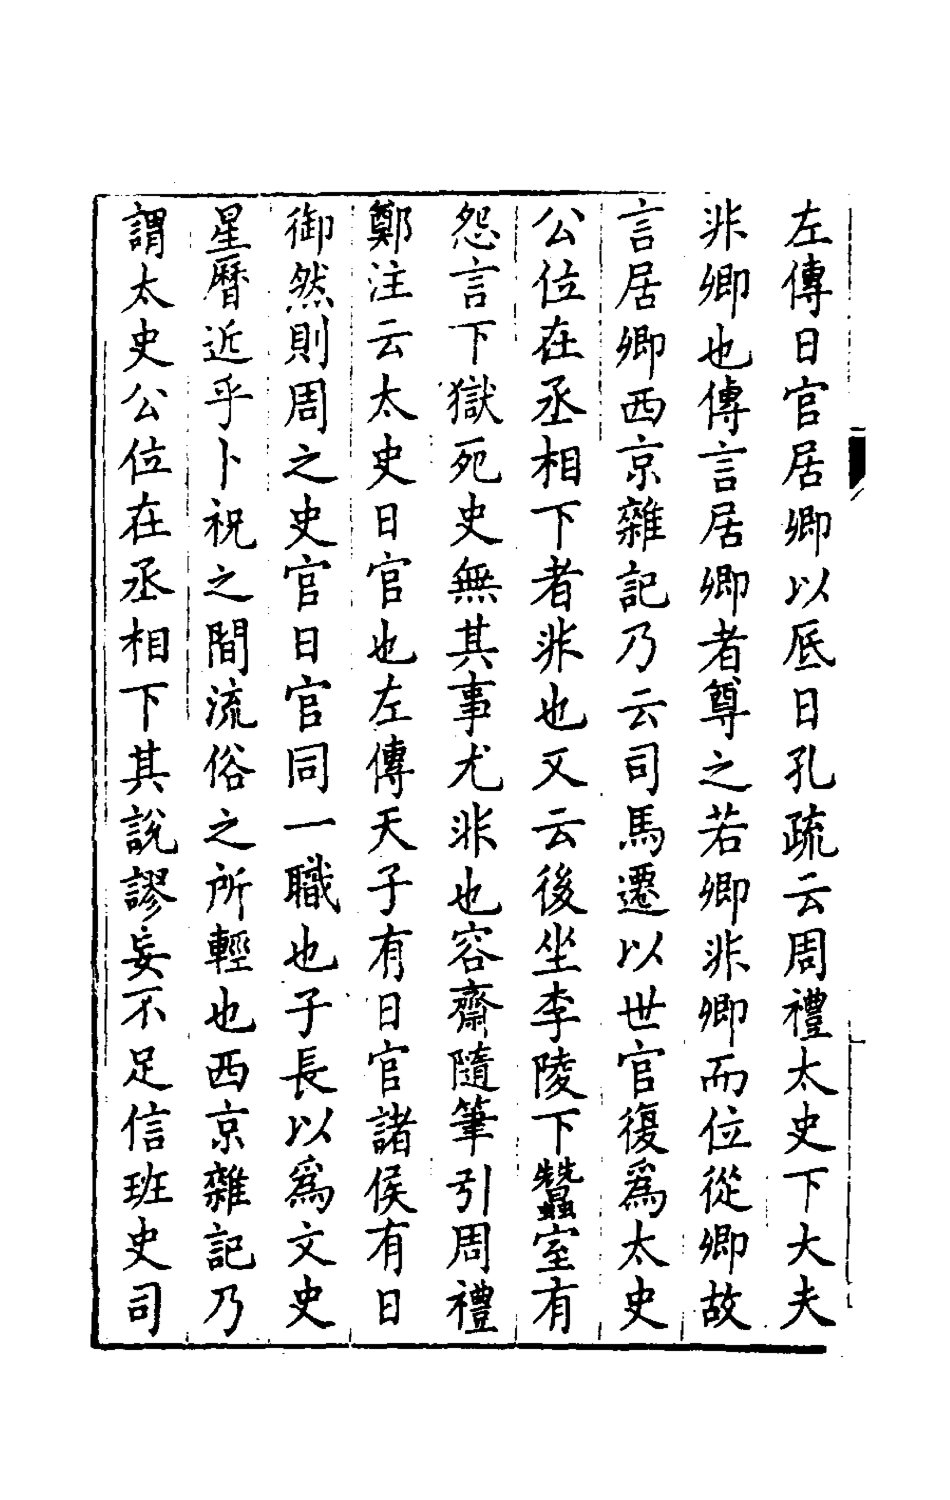 左傳日官居卿以厎日孔疏云周禮太史下大夫
非卿也傳言居卿者尊之若卿非卿而位從卿故
言居卿西京雜記乃云司馬遷以世官復爲太史
公位在丞相下者非也又云後坐李陵下蠶室有
怨言下獄死史無其事尤非也容齋隨筆引周禮
鄭注云太史日官也左傳天子有日官諸侯有日
御然則周之史官日官同一職也子長以爲文史
星曆近乎卜祝之間流俗之所輕也西京雜記乃
謂太史公位在丞相下其說謬妄不足信班史司